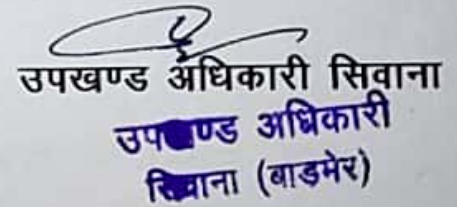 उपखण्ड अधिकारी सिवाना
उपखण्ड अधिकारी
सिवाना (बाडमेर)